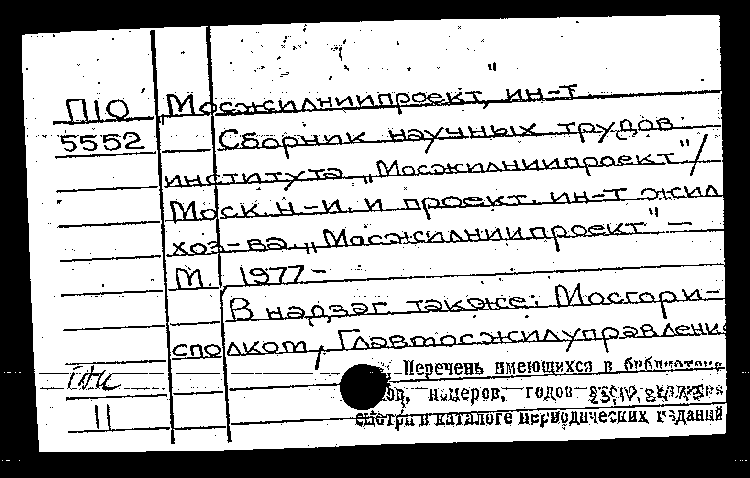 П10 „Мосжилниипроект", ин-т.
5552 Сборник научных трудов
института „Мосжилниипроект"/
Моск. н.-и. и проект. ин-т жил
хоз-ва „Мосжилниипроект" —
М. 1977 -
В надзаг. также: Мосгори-
сполком, Главмосжилуправлени
Перечень имеющихся в библиотеке
номеров, годов
11 смотри в каталоге периодических изданий